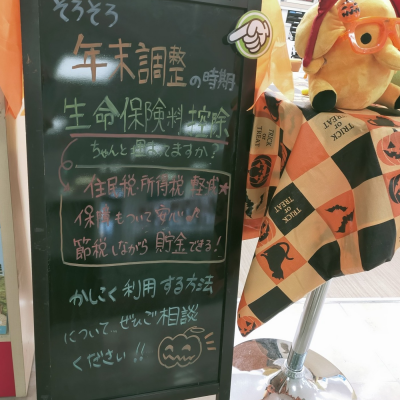 そろそろ
年末調整の時期
生命保険料控除
ちゃんと理解してますか？
住民税所得税軽減★
保障もついて安心♪
節税しながら貯金できる！
かしこく利用する方法
について、ぜひご相談
ください！！
TRICK or TREAT
TRICK or TREAT
TRICK or TREAT